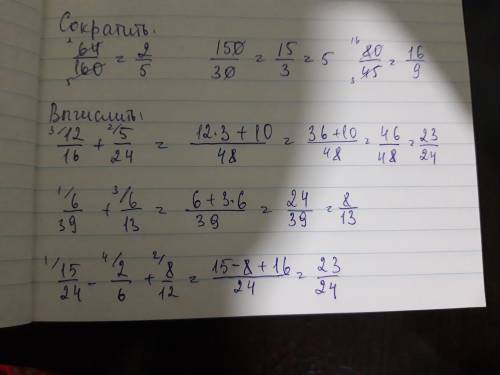 Сократить:
²64/160₅ = 2/5   150/30 = 15/3 = 5   ¹⁶80/45₉ = 16/9
Вычислить:
³/12/16 + ²/5/24 = 12·3+10/48 = 36+10/48 = 46/48 = 23/24
¹/6/39 + ³/6/13 = 6+3·6/39 = 24/39 = 8/13
¹/15/24 - ⁴/2/6 + ²/8/12 = 15-8+16/24 = 23/24